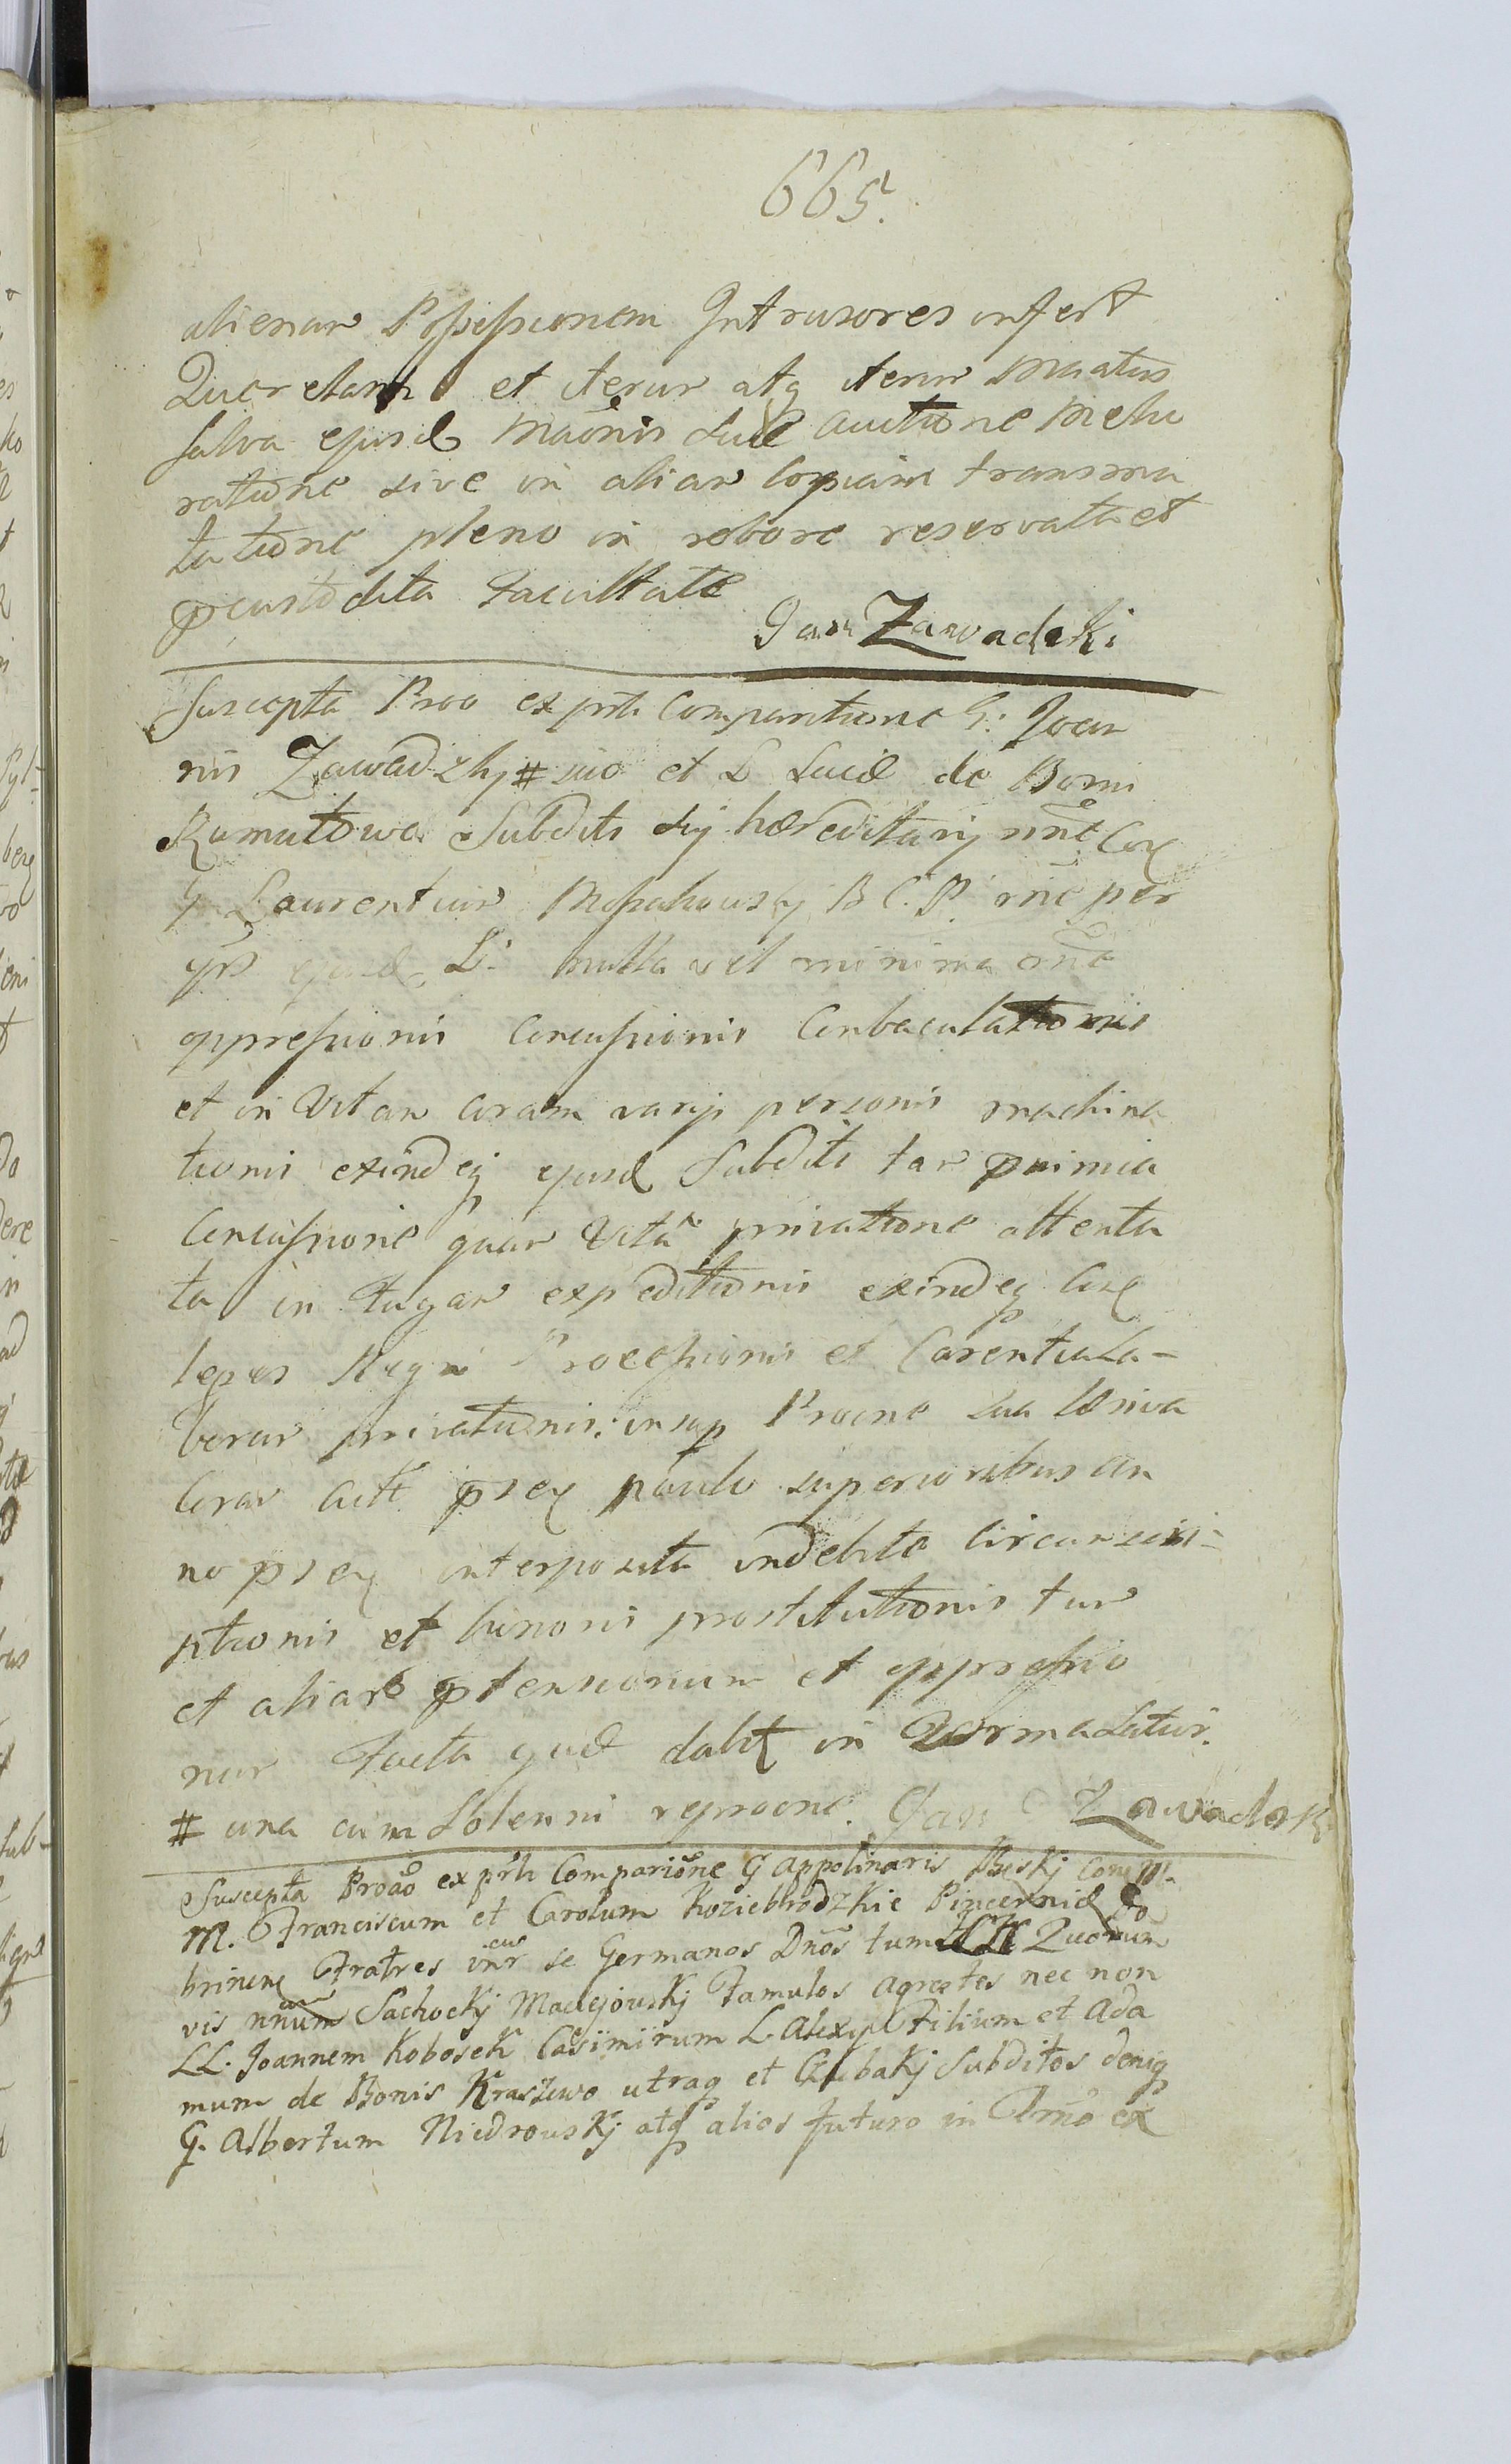 665.
alienam Possessionem Intrusores infert
Querelam et iterum atq iterum Maatus
salva ejusd Maonis suæ auctione melio
ratione sive in aliam copiam transmu
tatione pleno in robore reservata et
pcustodita Facultate
Jan Zawadzki
Suscepta Proo ex prti Compantione G: Joan
nis Zawadzky # suo et L Lucæ de Boni
Ramutowo Subditi sij hæreditarij nnē Con
G Laurentium B C. P. rnē per
ejusd L: nulla vel minima
oppressionis Concussionis Conbaculationis
et in Vitam coram varijs personis machina
tionis exindeq ejusd Subditi tam pnimia
Concussione quam Vitæ privatione attenta
ta in Fugam expeditionis exindeq Con
leges Regni Processionis et Carentia La-
borum privationis: insup Proone sua læsiva
Coram Actt psen paulo superioribus an
no psen interposita indebite Circumscri-
ptionis et honoris prostitutionis tum
et aliarū ptensionum et oppressio
num Facta quæ dabit in Forma Latior.
# una cum Solenni reproone. Jan Zawadzki
Suscepta Proāo ex prti Comparione G Appolinaris Con M.
M. Franciscum et Carolum Koziebrodzkie Pincernidæ Do
brinen Fratres inr se Germanos Dnos tum Quorum
vis nnum Sachockj Maciejouskj Famulos agrestes nec non
LL. Joannem Kobosek Casimirum L. Alexij Filium et Ada
mum de Bonis Kraszewo utraq et Subditos deniq
G. Albertum Niedrouskj atq alios futuro in Trno ex